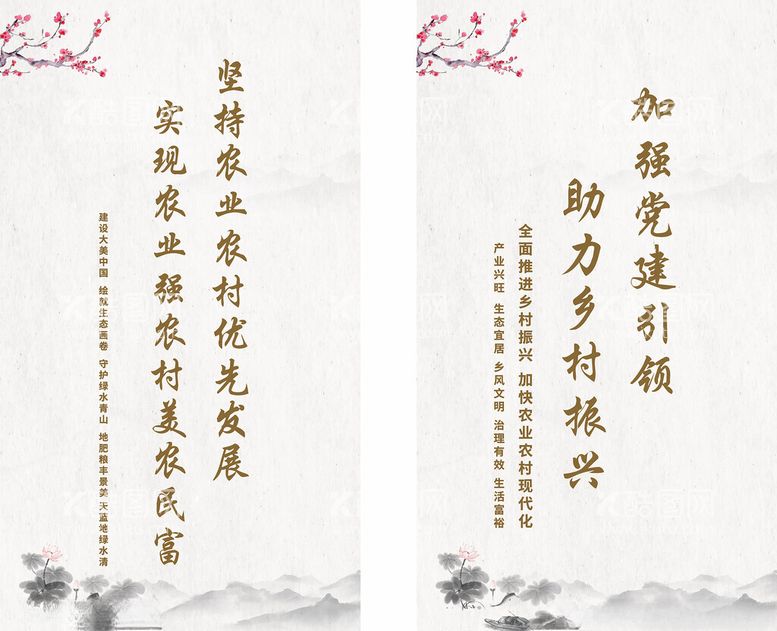 坚持农业农村优先发展
实现农业强农村美农民富
建设大美中国 绘就生态画卷 守护绿水青山 地肥粮丰景美 天蓝地绿水清
加强党建引领
助力乡村振兴
全面推进乡村振兴 加快农业农村现代化
产业兴旺 生态宜居 乡风文明 治理有效 生活富裕